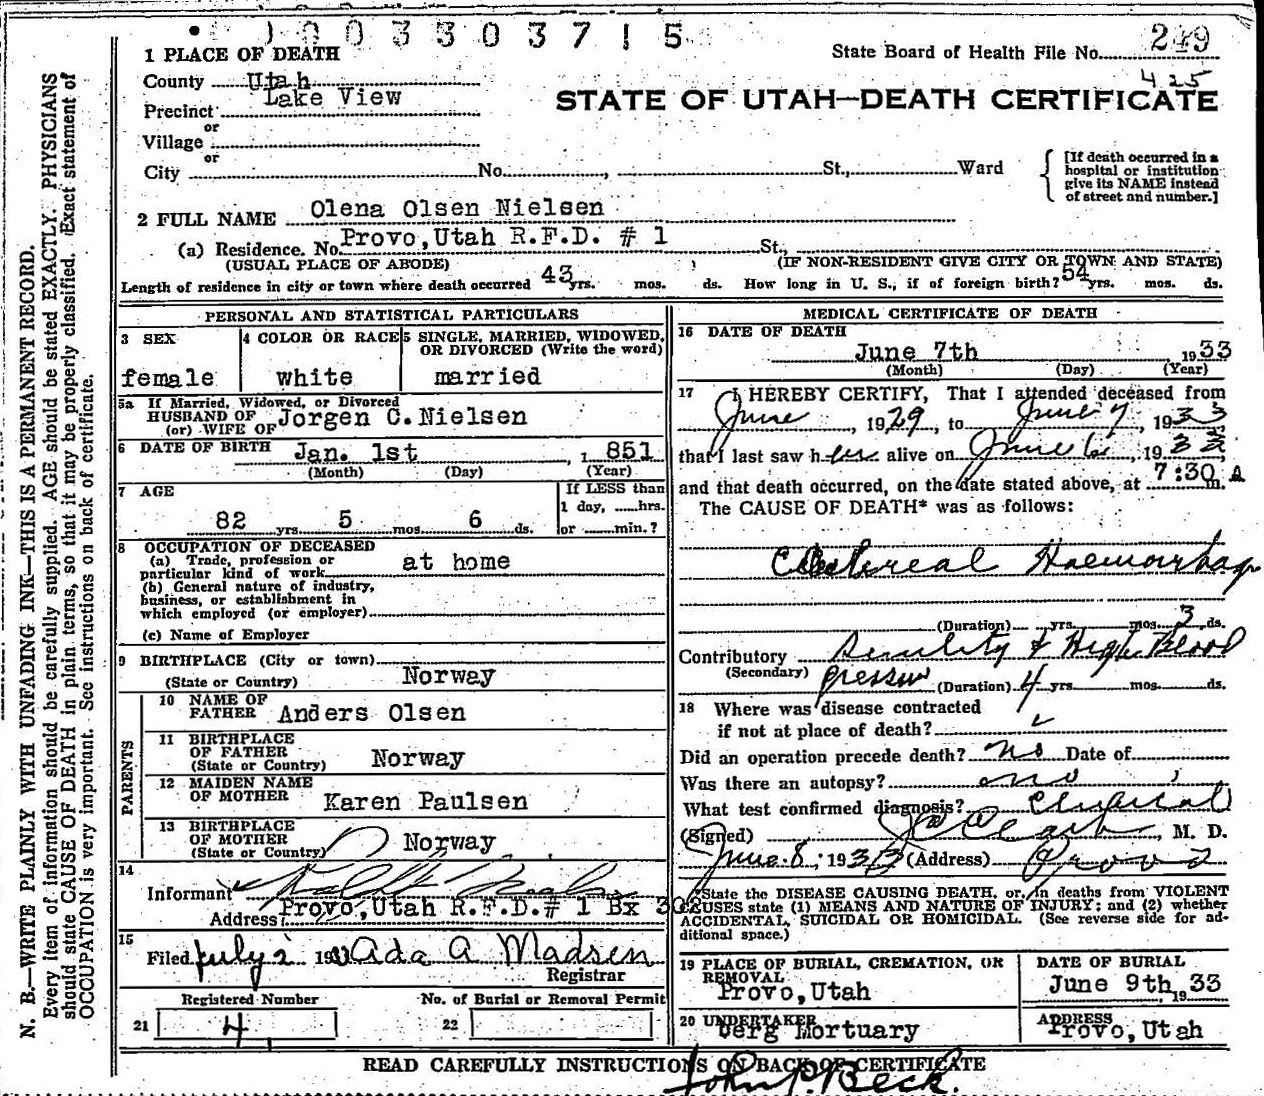 1003303715
1 PLACE OF DEATH
State Board of Health File No. 249
County Utah
425
Precinct Lake View
STATE OF UTAH—DEATH CERTIFICATE
or
Village
or
City No. , St., Ward
[If death occurred in a
hospital or institution
give its NAME instead
of street and number.]
2 FULL NAME Olena Olsen Nielsen
(a) Residence. No. Provo, Utah R.F.D. # 1 St.,
(USUAL PLACE OF ABODE) (IF NON-RESIDENT GIVE CITY OR TOWN AND STATE)
Length of residence in city or town where death occurred 43 yrs. mos. ds. How long in U. S., if of foreign birth? 54 yrs. mos. ds.
PERSONAL AND STATISTICAL PARTICULARS
3 SEX 4 COLOR OR RACE 5 SINGLE, MARRIED, WIDOWED,
OR DIVORCED (Write the word)
female white married
5a If Married, Widowed, or Divorced
HUSBAND OF
(or) WIFE OF Jorgen C. Nielsen
6 DATE OF BIRTH Jan. 1st , 1851
(Month) (Day) (Year)
7 AGE If LESS than
1 day, ......hrs.
82 yrs 5 mos 6 ds. or ......min.?
8 OCCUPATION OF DECEASED
(a) Trade, profession or
particular kind of work at home
(b) General nature of industry,
business, or establishment in
which employed (or employer)
(c) Name of Employer
9 BIRTHPLACE (City or town)
(State or Country) Norway
PARENTS
10 NAME OF
FATHER Anders Olsen
11 BIRTHPLACE
OF FATHER
(State or Country) Norway
12 MAIDEN NAME
OF MOTHER Karen Paulsen
13 BIRTHPLACE
OF MOTHER
(State or Country) Norway
14
Informant
Address Provo, Utah R.F.D.# 1 Bx 302
15
Filed July 2 193 Ada A Madsen
Registrar
Registered Number No. of Burial or Removal Permit
21 4 22
MEDICAL CERTIFICATE OF DEATH
16 DATE OF DEATH
June 7th 1933
(Month) (Day) (Year)
17 I HEREBY CERTIFY, That I attended deceased from
June , 1929, to June 7, 1933
that I last saw her alive on June 6, 1933,
and that death occurred, on the date stated above, at 7:30 A m.
The CAUSE OF DEATH* was as follows:
Cerebreal Haemorrhage
(Duration) yrs. mos. 3 ds.
Contributory Senility & High Blood
(Secondary) pressure (Duration) 4 yrs mos. ds.
18 Where was disease contracted
if not at place of death?
Did an operation precede death? no Date of
Was there an autopsy? no
What test confirmed diagnosis? Clinical
(Signed) , M. D.
June 8, 1933 (Address) Provo
*State the DISEASE CAUSING DEATH, or, in deaths from VIOLENT
CAUSES state (1) MEANS AND NATURE OF INJURY; and (2) whether
ACCIDENTAL, SUICIDAL OR HOMICIDAL. (See reverse side for ad-
ditional space.)
19 PLACE OF BURIAL, CREMATION, OR
REMOVAL
Provo, Utah
DATE OF BURIAL
June 9th, 1933
20 UNDERTAKER
Berg Mortuary
ADDRESS
Provo, Utah
READ CAREFULLY INSTRUCTIONS ON BACK OF CERTIFICATE
John P. Beck.
N. B.—WRITE PLAINLY WITH UNFADING INK—THIS IS A PERMANENT RECORD.
Every item of information should be carefully supplied. AGE should be stated EXACTLY. PHYSICIANS
should state CAUSE OF DEATH in plain terms, so that it may be properly classified. Exact statement of
OCCUPATION is very important. See instructions on back of certificate.